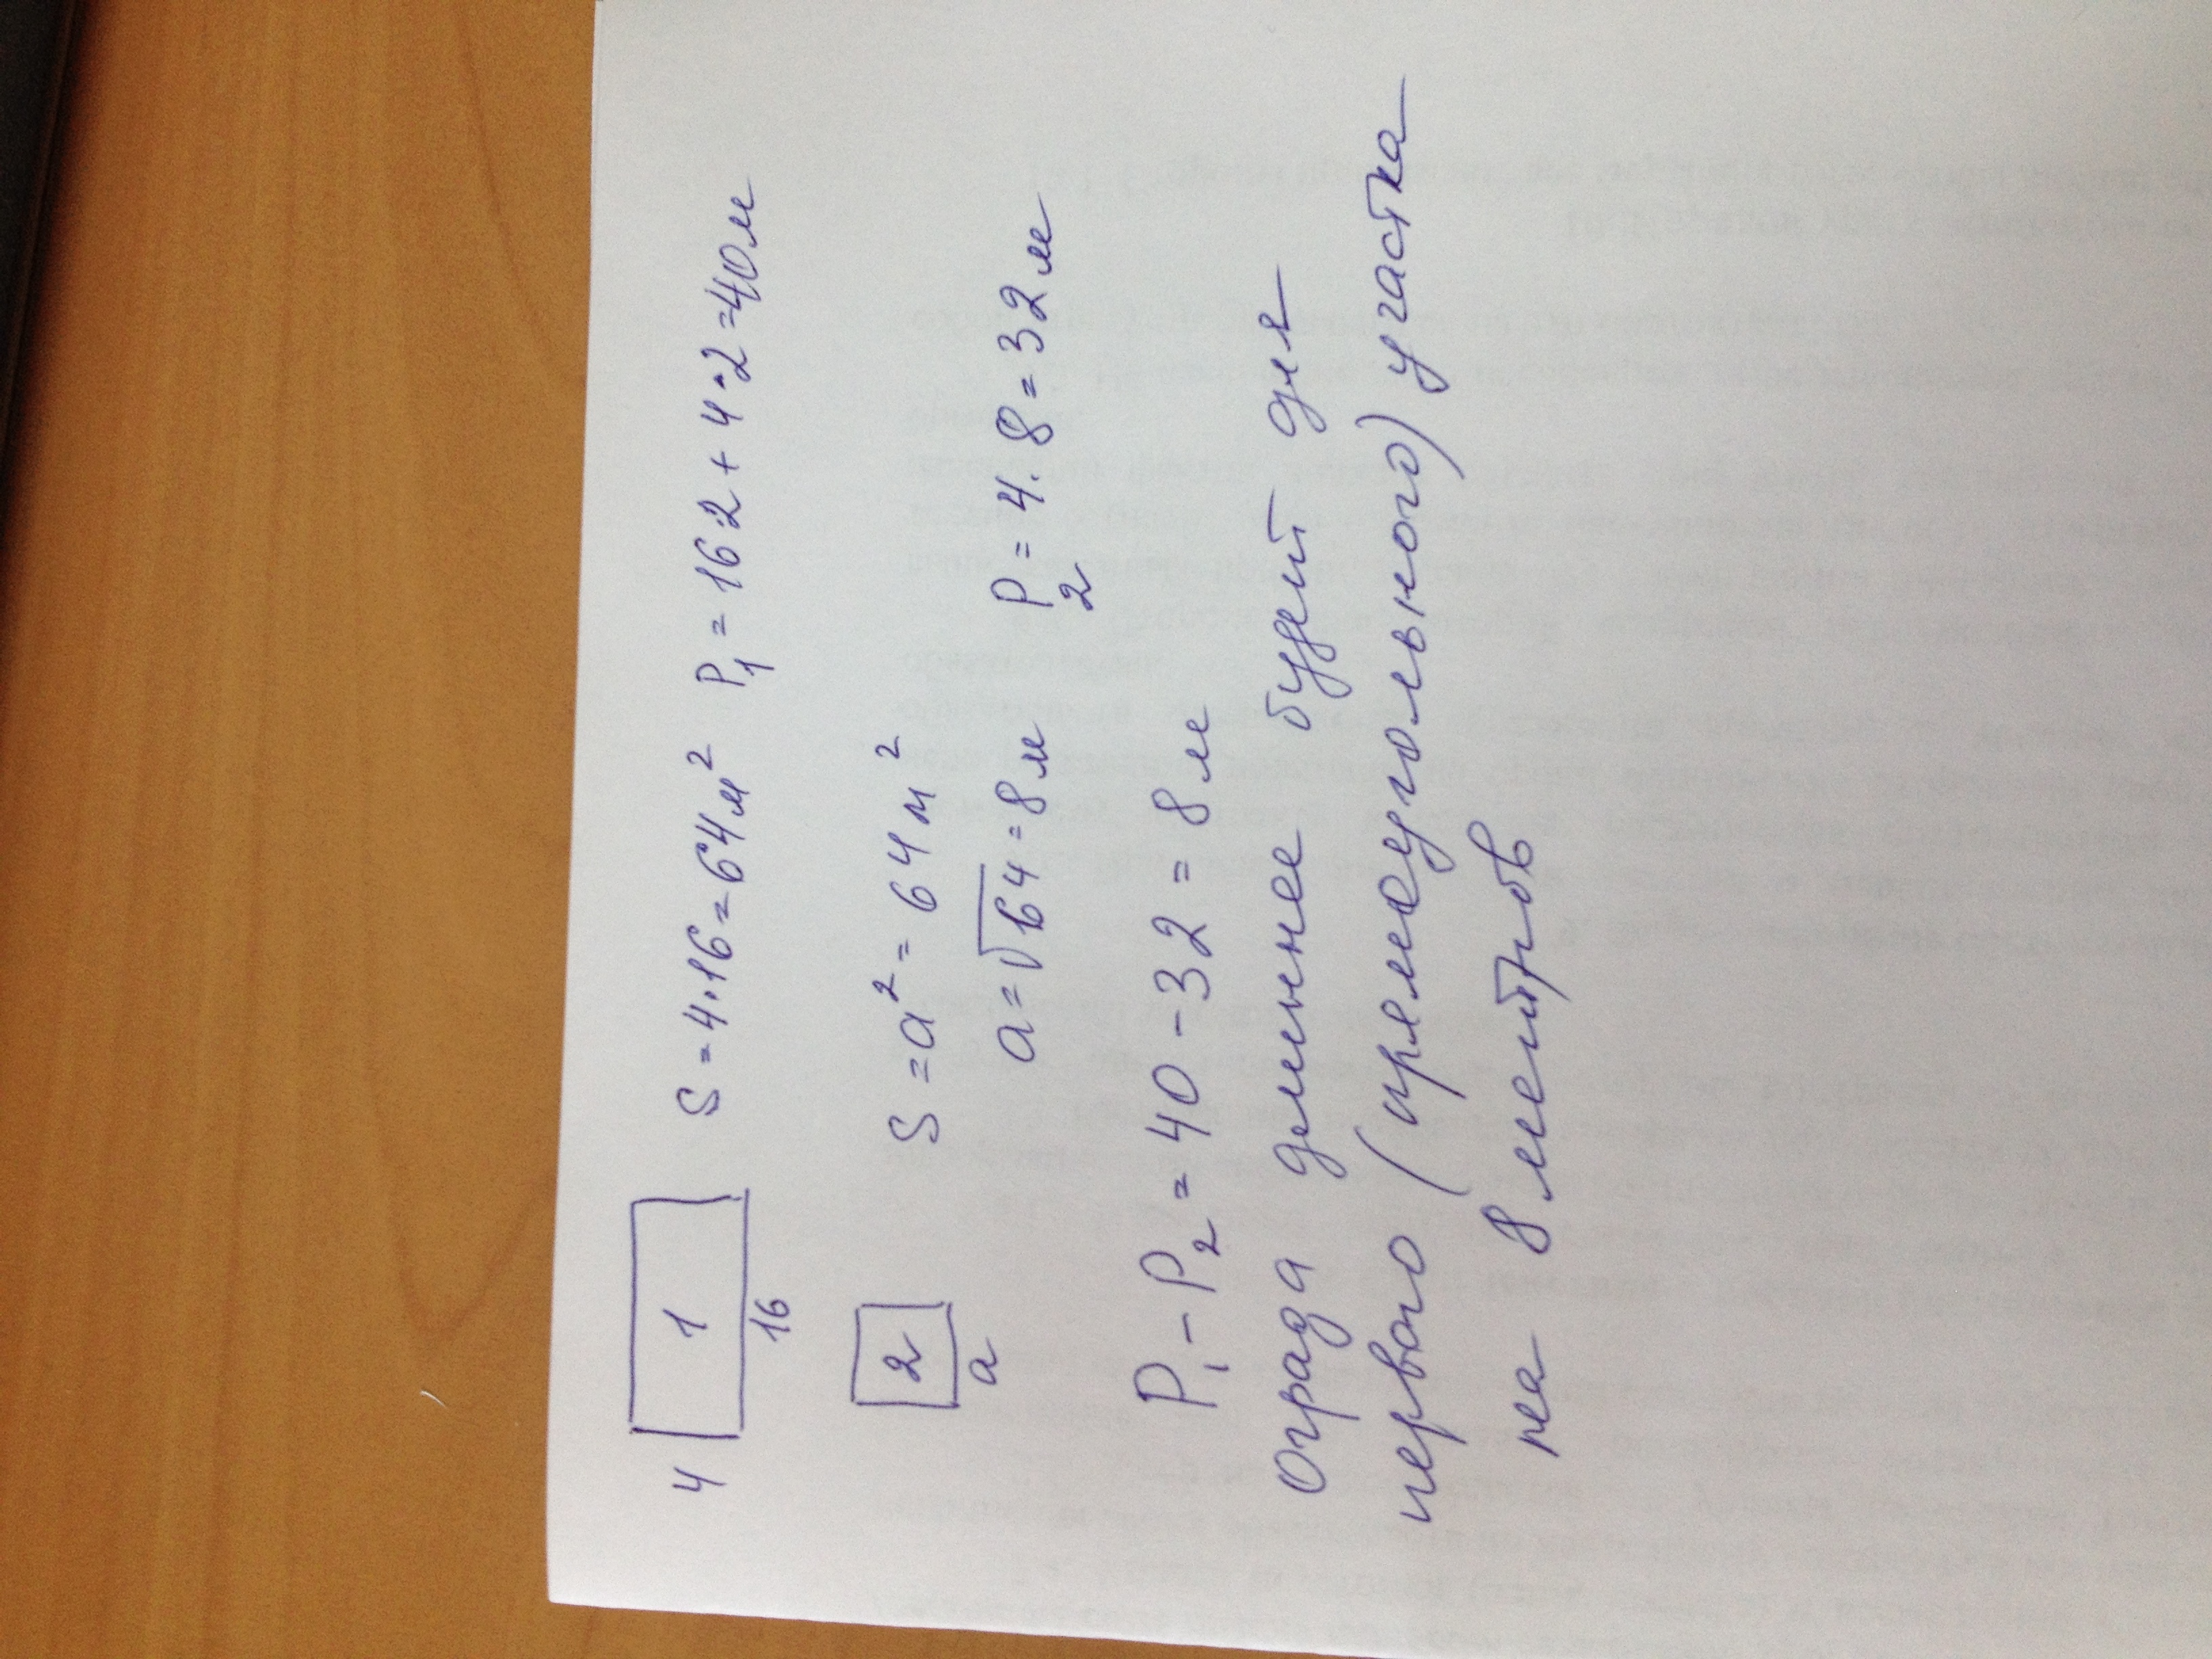 4 1 S = 4·16 = 64 м² P₁ = 16·2 + 4·2 = 40 м
16
2 S = a² = 64 м²
a a = √64 = 8 м P₂ = 4·8 = 32 м
P₁ - P₂ = 40 - 32 = 8 м
Ограда длиннее будет для
первого (прямоугольного) участка
на 8 метров